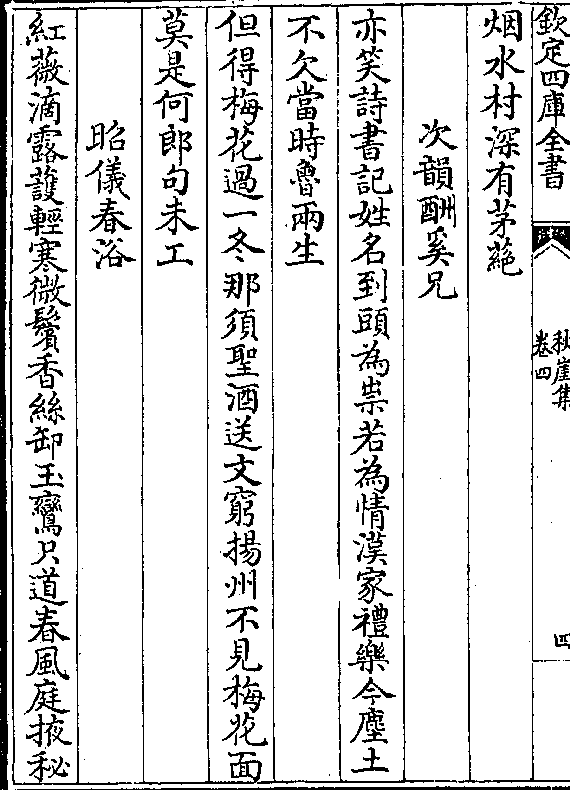 欽定四庫全書
秋崖集
卷四
四
烟水村深有茅蕝
次韻酬奚兄
亦笑詩書記姓名到頭為祟若為情漢家禮樂今塵土
不欠當時魯兩生
但得梅花過一冬那須聖酒送文窮揚州不見梅花面
莫是何郎句未工
昭儀春浴
紅薇滴露護輕寒微鬢香絲卸玉鸞只道春風庭掖秘